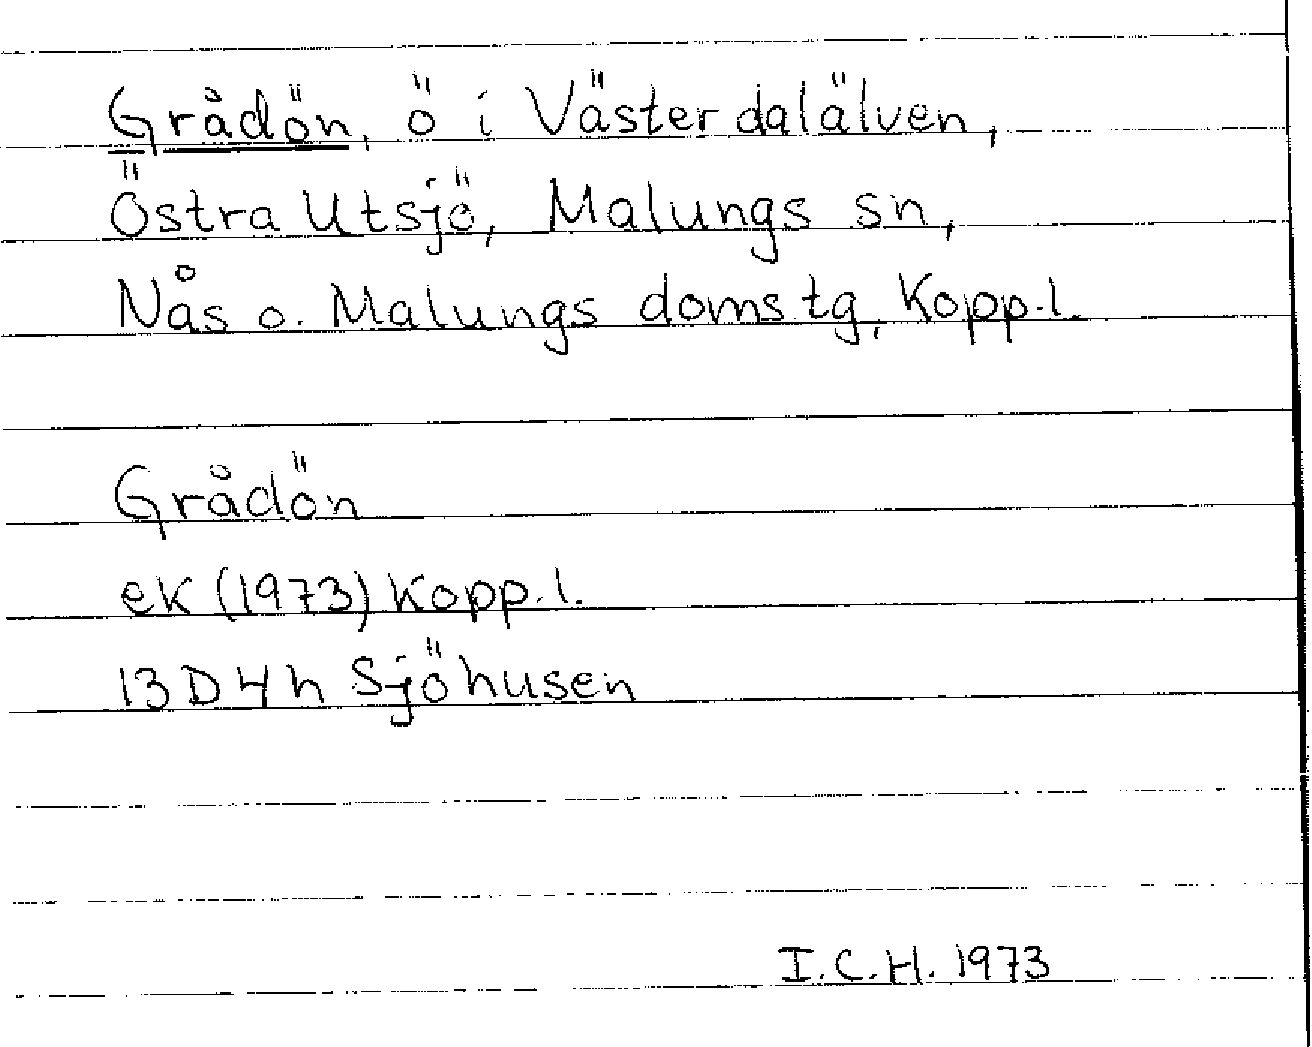 Grådön, ö i Västerdalälven,
Östra Utsjö, Malungs sn,
Nås o. Malungs domstg, Kopp.l.
Grådön
eK (1973) Kopp.l.
13D4h Sjöhusen
I.C.H. 1973